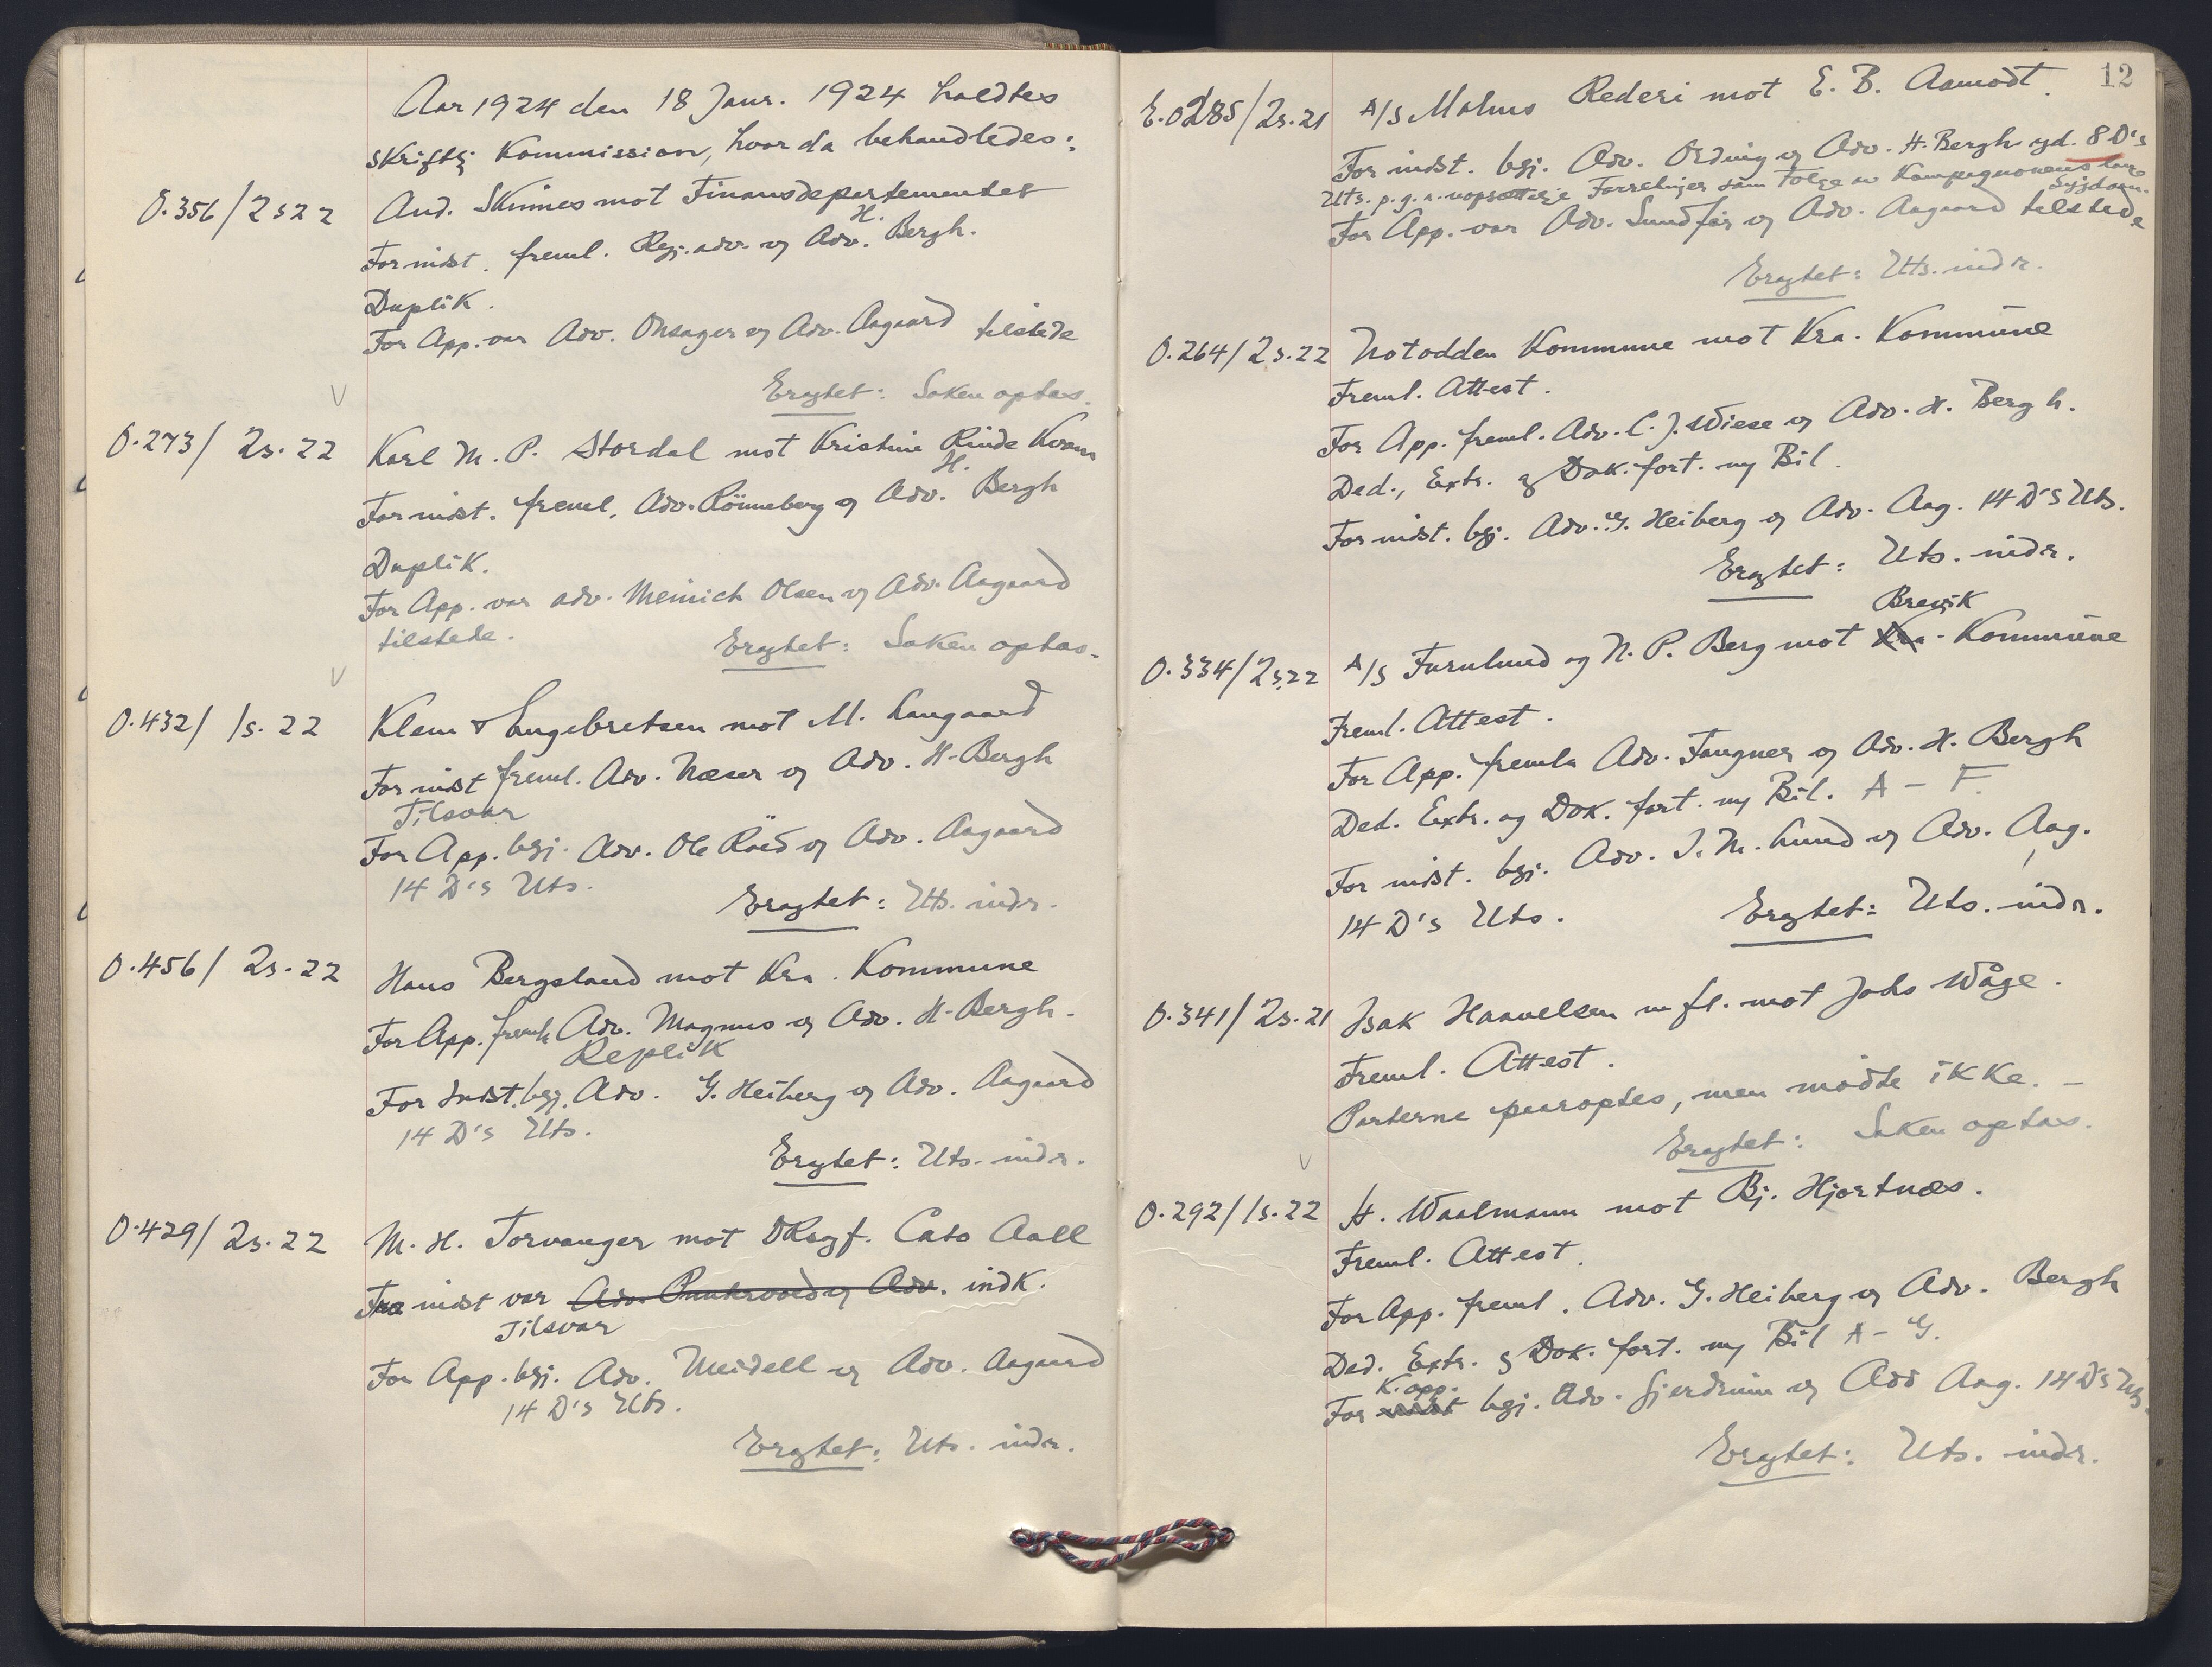 Aar 1924 den 18 Janr. 1924 holdtes
skriftlig Kommission, hvor da behandledes:
O.356/2s22 And. Skinnes mot Finansdepartementet
For indst. freml. Regj.adv. og Adv. H. Bergh.
Duplik.
For App. var Adv. Onsager og Adv. Aagaard tilstede
Eragtet: Saken optas.
V
O.273/ 2s.22 Karl M. P. Stordal mot Kristine Rinde Kvam
For indst. freml. Adv. Rönneberg og Adv. H. Bergh
Duplik.
For App. var adv. Meinich Olsen og Adv. Aagaard
tilstede. Eragtet: Saken optas.
V
O.432/ 1s.22 Klem & Engebretsen mot M. Langaard
For indst freml. Adv. Næser og Adv. H. Bergh
Tilsvar
For App. bgj. Adv. Ole Röed og Adv. Aagaard
14 D's Uts. Eragtet: Uts. indr.
O.456/ 2s.22 Hans Bergsland mot Kra. Kommune
For App. freml. Adv. Magnus og Adv. H. Bergh.
Replik
For Indst. bgj. Adv. G. Heiberg og Adv. Aagaard
14 D's Uts.
Eragtet: Uts. indr.
O.429/ 2s.22 M. H. Torvanger mot Cato Aall
indst var Adv. og Adv. indk.
Tilsvar
For App. bgj. Adv. Meidell og Adv. Aagaard
14 D's Uts.
Eragtet: Uts. indr.
12
E.0285/2s.21 A/S Malms Rederi mot E. B. Aamodt.
For indst. bgj. Adv. Ording og Adv. H. Bergh yd. 8 D's
Uts. p. g. a. uopsættelige Forretninger som Følge av Kompagnonens
Sygdom.
For App. var Adv. Sundfør og Adv. Aagaard tilstede
Eragtet: Uts. indr.
O.264/2s.22 Notodden Kommune mot Kra. Kommune
Freml. Attest.
For App. freml. Adv. C. J. Wiese og Adv. H. Bergh.
Ded., Extr. og Dok. fort. og Bil.
For indst. bgj. Adv. G. Heiberg og Adv. Aag. 14 D's Uts.
Eragtet: Uts. indr.
Brevik
O.334/2s.22 A/S Furulund og N. P. Berg mot Kra. Kommune
Freml. Attest.
For App. freml. Adv. Fougner og Adv. H. Bergh
Ded. Extr. og Dok. fort. og Bil. A - F.
For indst. bgj. Adv. I. M. Lund og Adv. Aag.
14 D's Uts. Eragtet: Uts. indr.
O.341/2s.21 Isak Haavelsen m fl. mot Johs Wåge.
Freml. Attest.
Parterne paaroptes, men mødte ikke. -
Eragtet: Saken optas.
V
O.292/1s.22 H. Waalmann mot Bj. Hjortnæs.
Freml. Attest.
For App. freml. Adv. G. Heiberg og Adv. Bergh
Ded. Extr. og Dok. fort. og Bil A - G.
K. opp.
For indst bgj. Adv. Gjerdrum og Adv Aag. 14 D's Uts.
Eragtet: Uts. indr.